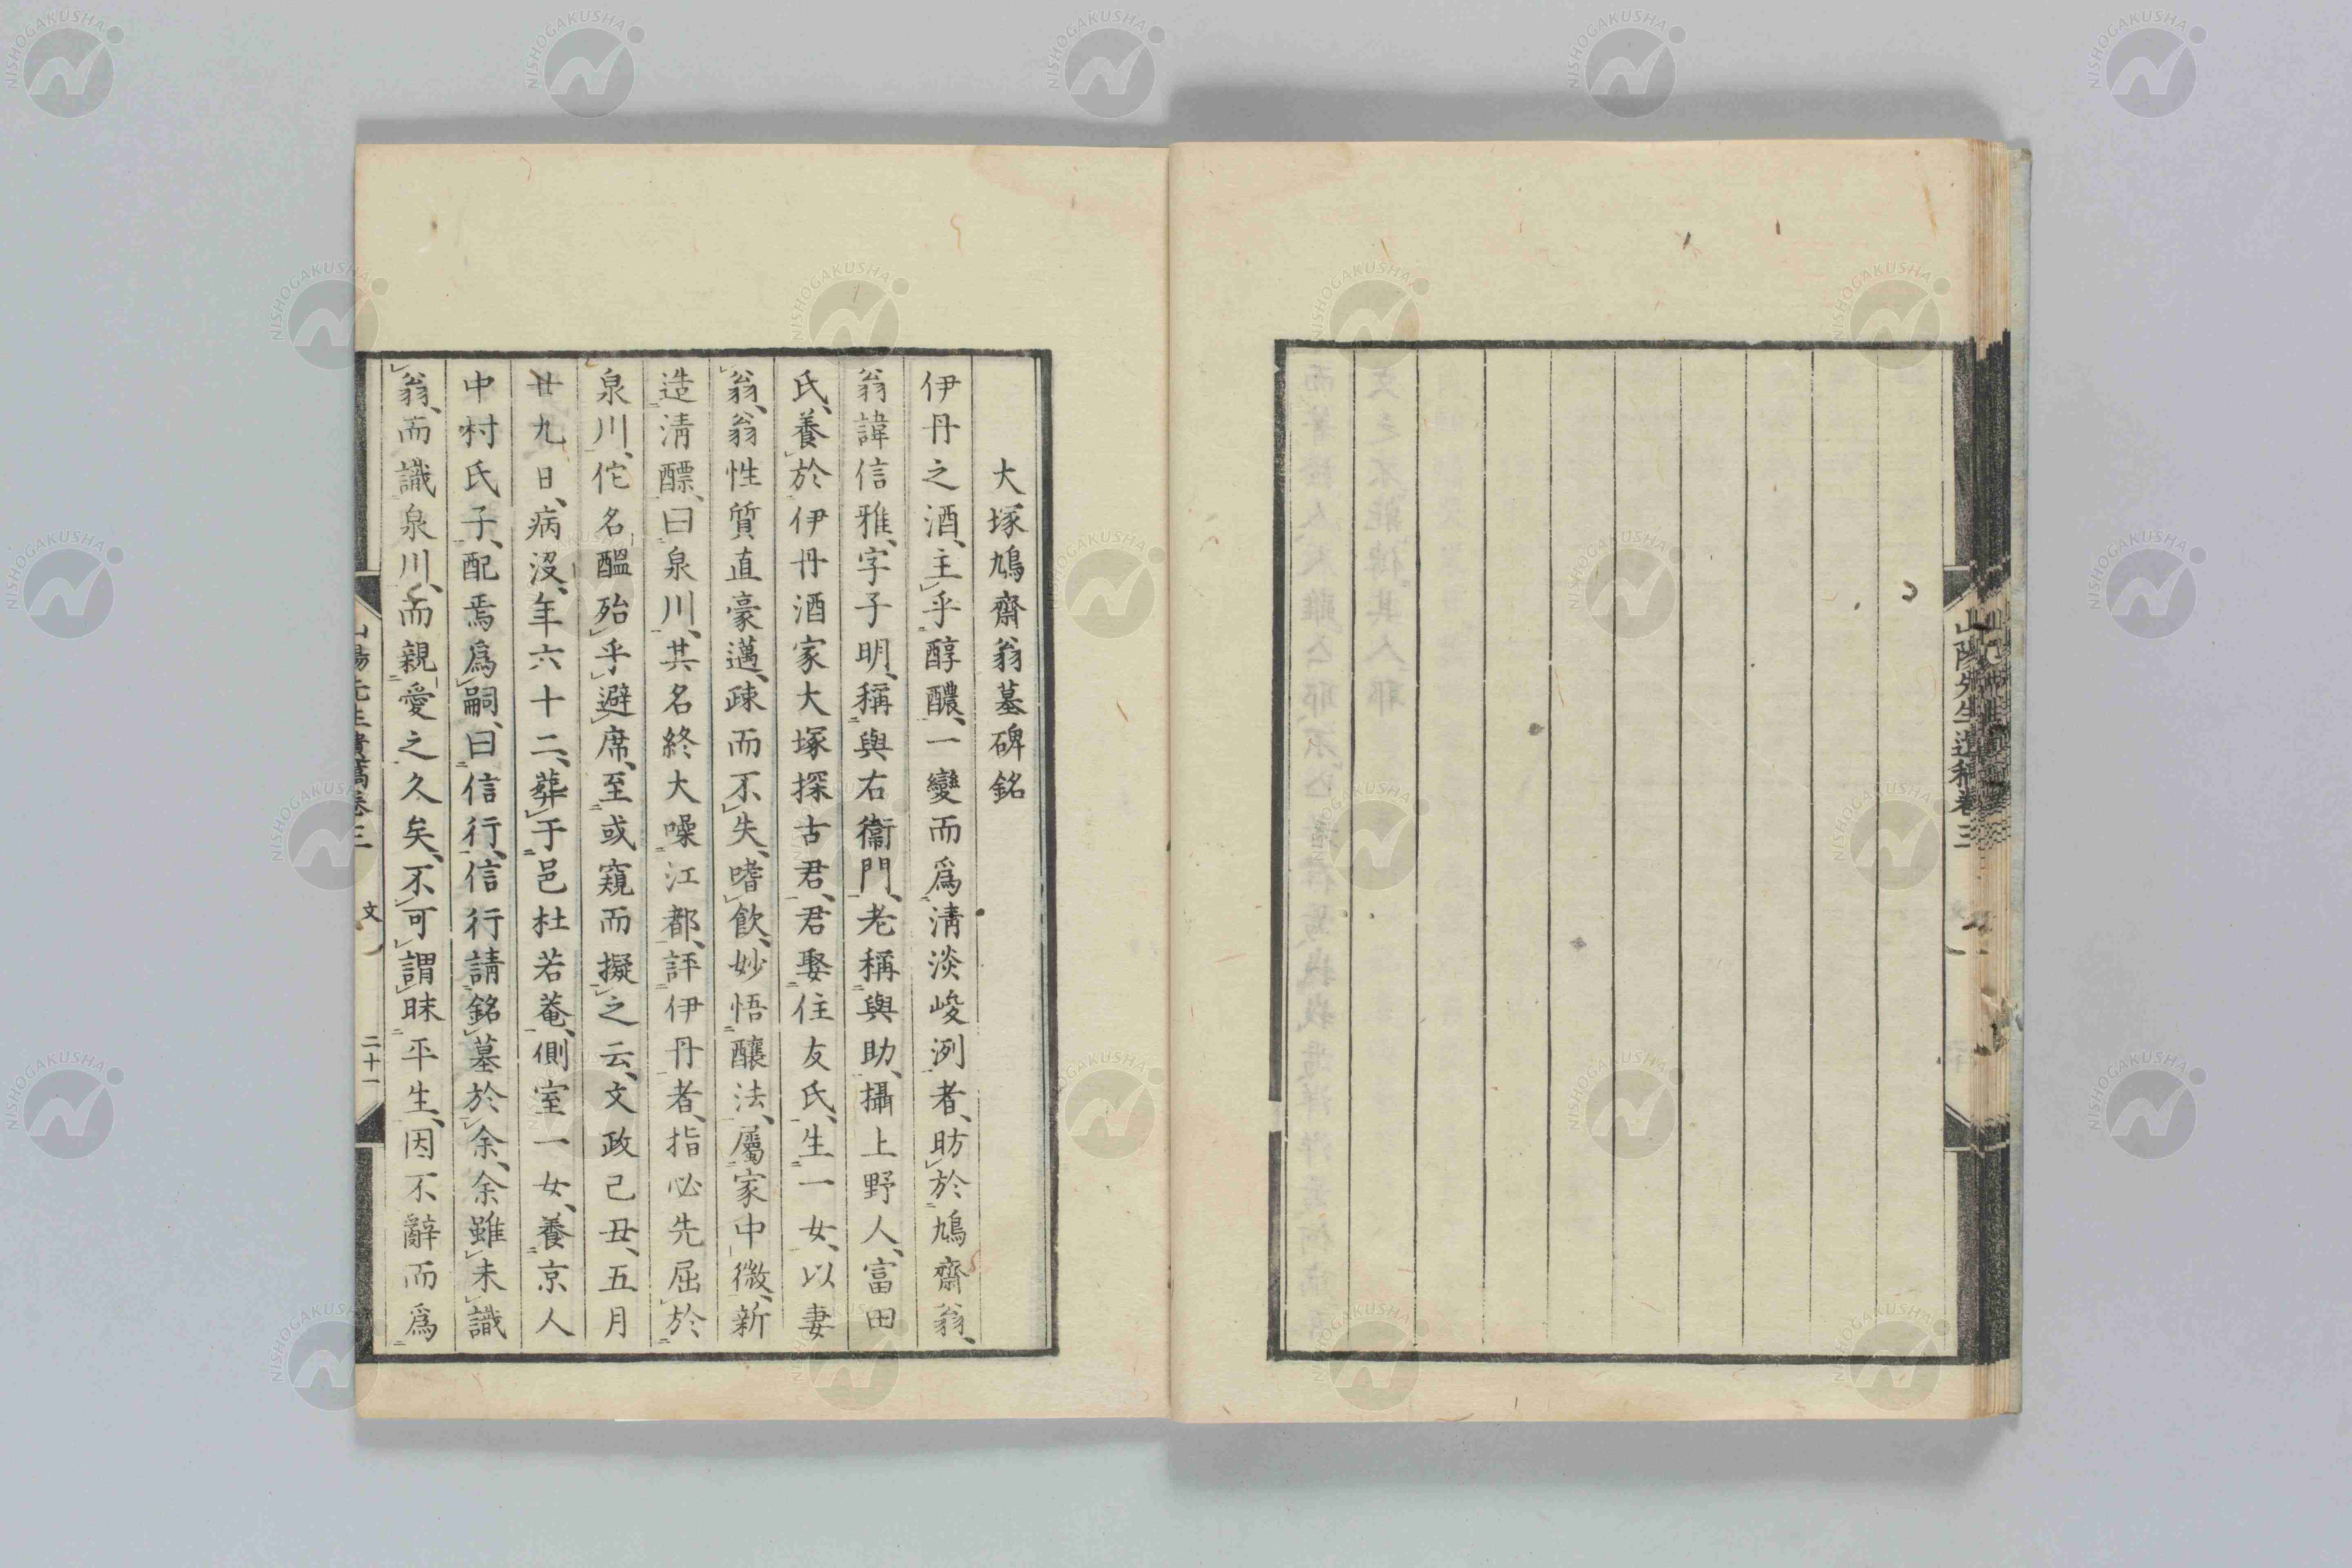 山陽先生遺稿卷三
大塚鳩齋翁墓碑銘
伊丹之酒、主乎醇醲、一變而爲清淡峻洌者、昉於鳩齋翁、
翁諱信雅、字子明、稱與右衞門、老稱與助、攝上野人、富田
氏、養於伊丹酒家大塚探古君、君娶住友氏、生一女、以妻
翁、翁性質直豪邁、疎而不失、嗜飮、妙悟釀法、屬家中微、新
造清醥、曰泉川、其名終大噪江都、評伊丹者、指必先屈於
泉川、佗名醞殆乎避席、至或窺而擬之云、文政己丑、五月
廿九日、病沒、年六十二、葬于邑杜若菴、側室一女、養京人
中村氏子、配焉爲嗣、曰信行、信行請銘墓於余、余雖未識
翁、而識泉川、而親愛之久矣、不可謂昧平生、因不辭而爲
山陽先生遺稿卷三 文 二十一
NISHOGAKUSHA